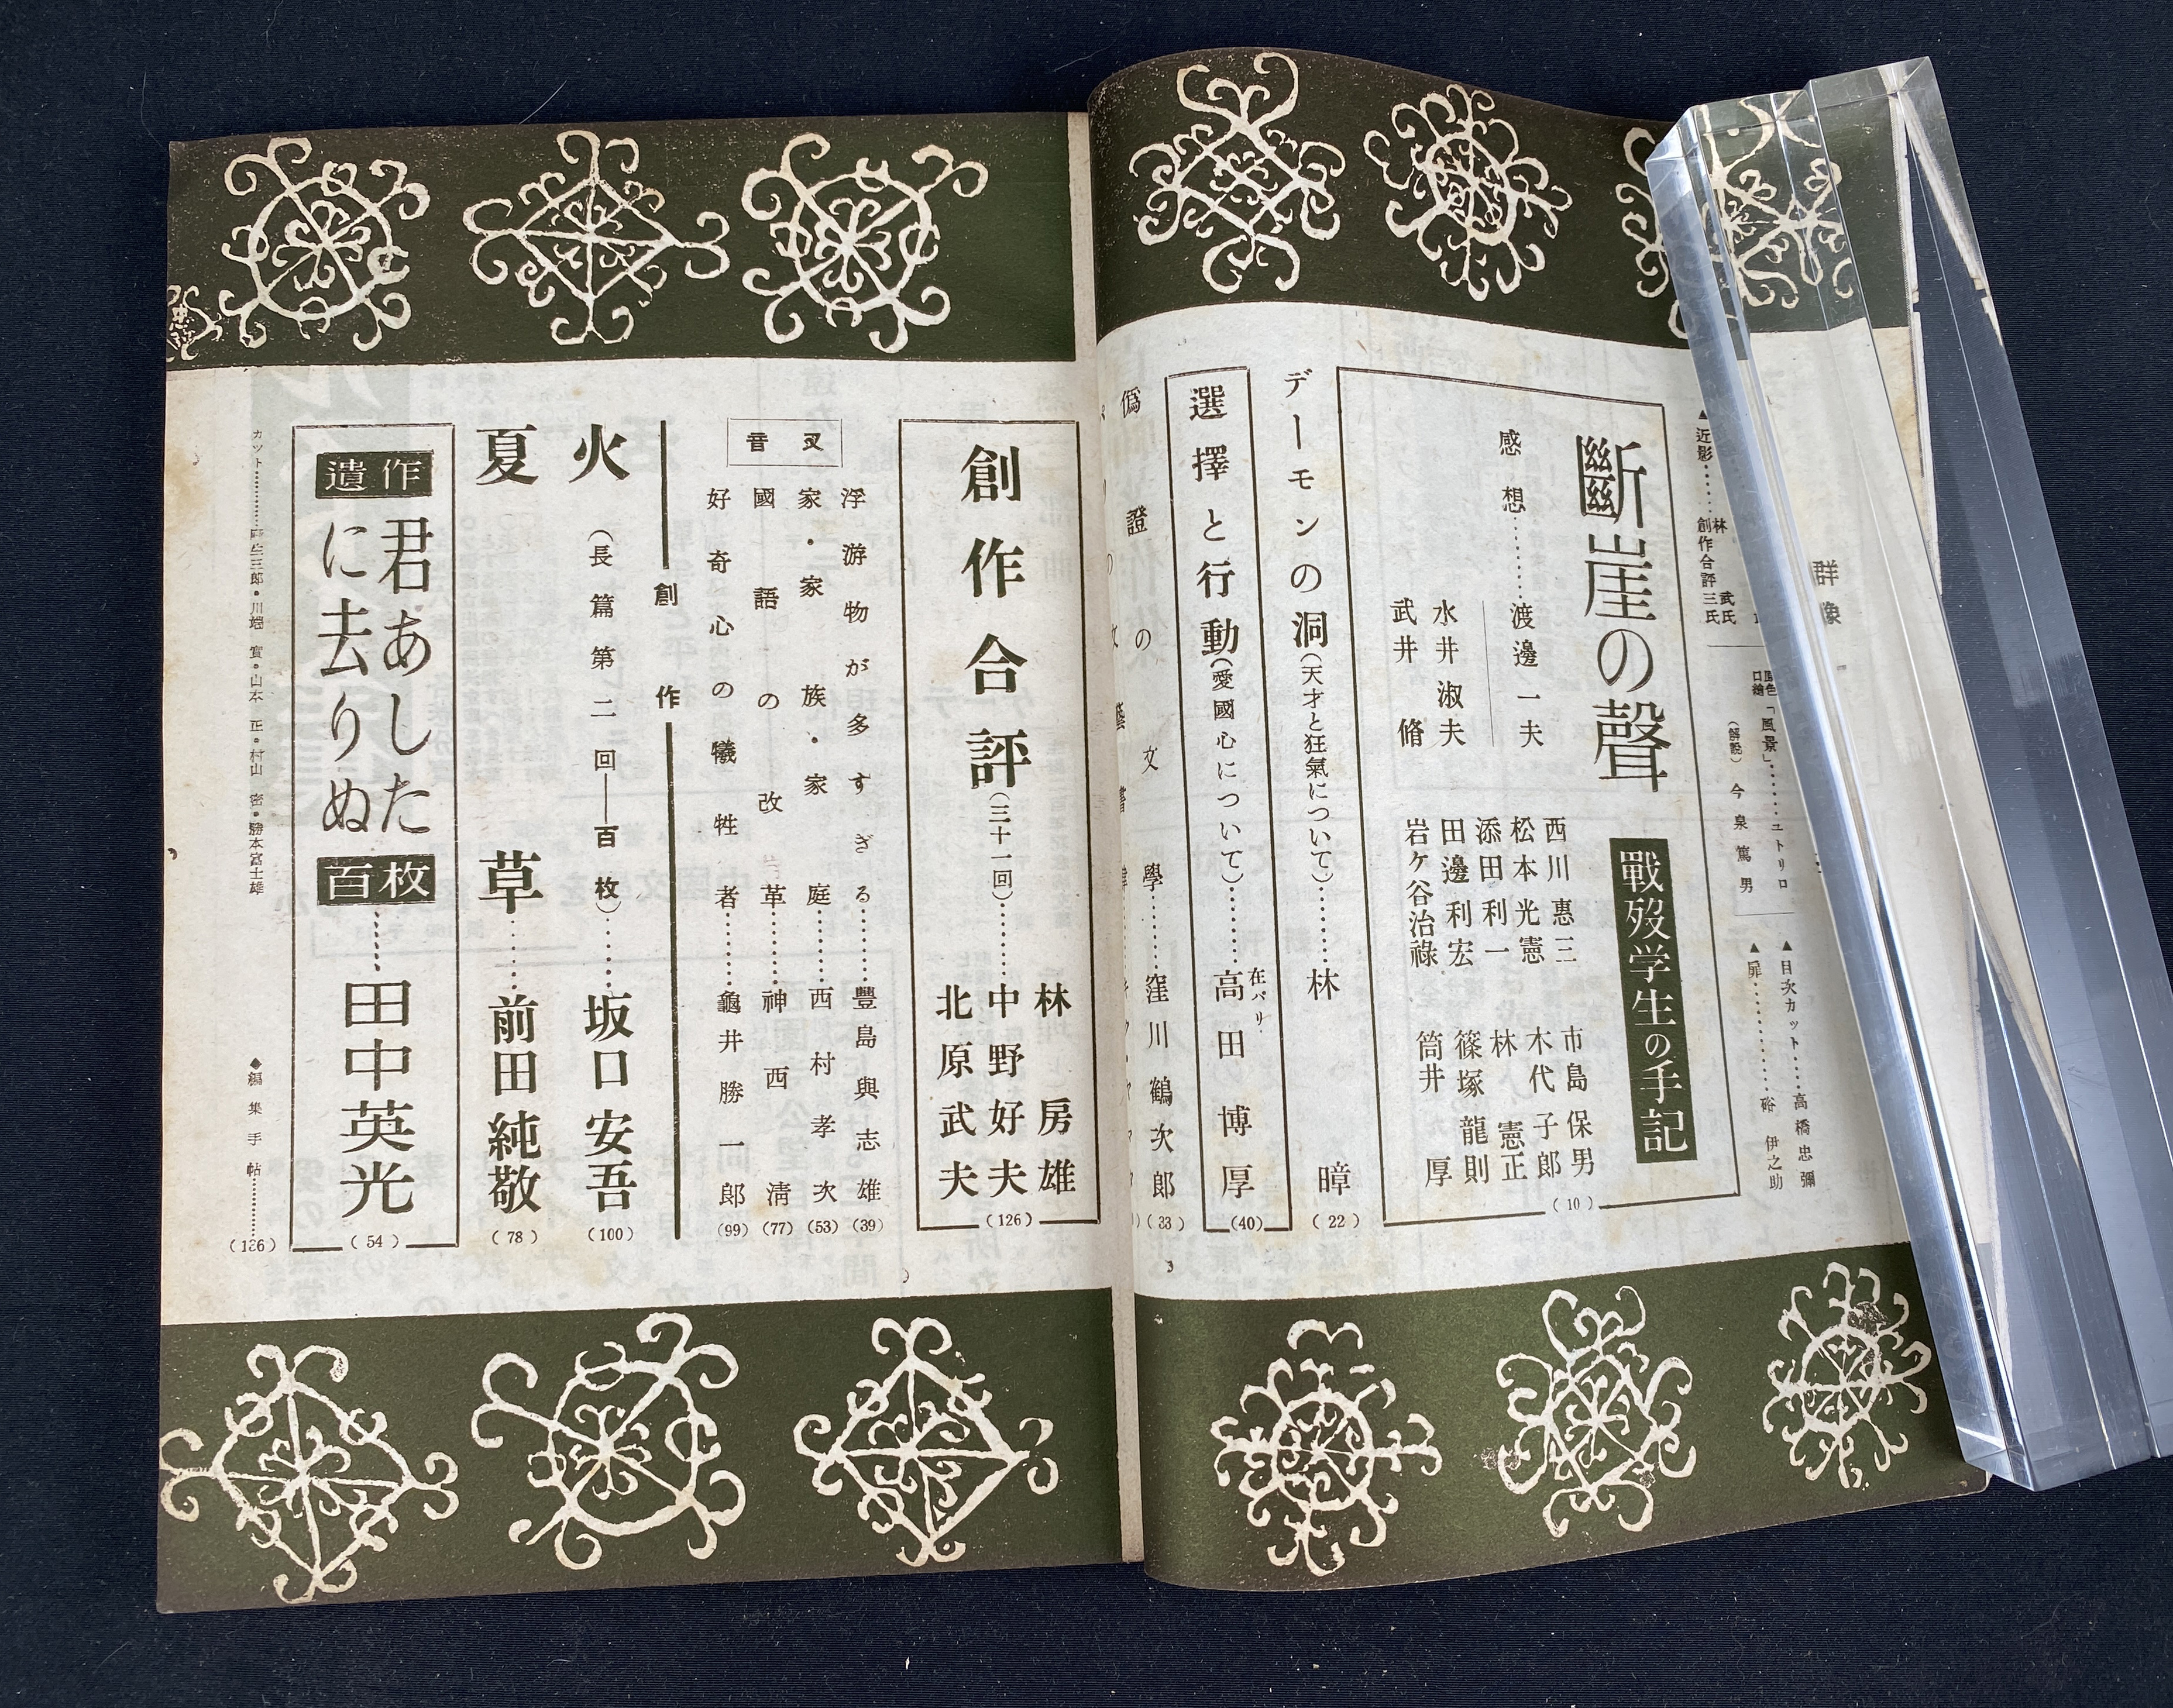 群像
原色
口繪「風景」………ユトリロ
(解説) 今泉篤男
▲目次カット……高橋忠彌
▲扉………硲伊之助
▲近影……林
武氏
創作合評三氏
斷崖の聲
戰歿学生の手記
感想………渡邊一夫
水井淑夫
武井脩
西川惠三
松本光憲
添田利一
田邊利宏
岩ケ谷治祿
市島保男
木代子郎
林憲正
篠塚龍則
筒井厚
(10)
デーモンの洞(天才と狂氣について)………林暲(22)
選擇と行動(愛國心について)………在パリ高田博厚(40)
僞證の文學………窪川鶴次郎(33)
創作合評(三十一回)………林房雄
中野好夫
北原武夫
(126)
音叉
浮游物が多すぎる………豐島與志雄(39)
家・家族・家庭………西村孝次(53)
國語の改革………神西淸(77)
好奇心の犧牲者………龜井勝一郎(99)
創作
火(長篇第二回——百枚)………坂口安吾(100)
夏草………前田純敬(78)
遺作
君あした
に去りぬ
百枚………田中英光(54)
カット………三郎・川端實・山本正・村山密・勝本富士雄
◆編集手帖………(136)